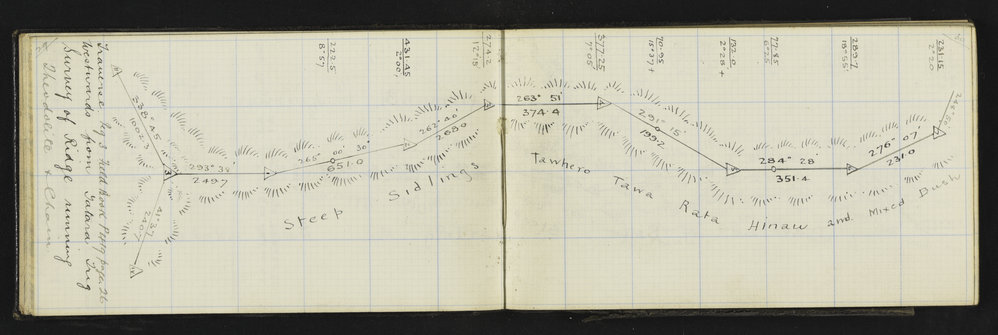 Theodolite & Chain
Survey of Ridge running
Westwards from Trig
Traverse Fig 3 Field Book page 26
238° 45'
1000.3
41° 37'
240.7
293° 38'
249.7
265° 00' 30"
651.0
262° 40'
268.0
Steep Sidlings
222.5
8° 57'
431.45
2° 00'
274.2
12° 15'
263° 51'
374.4
291° 15'
199.2
284° 28'
351.4
276° 07'
231.0
248° 50'
Tawhero Tawa Rata Hinau and Mixed Bush
377.25
7° 05'
70.35
15° 37'+
132.0
2° 28'+
77.85
6° 25'
289.7
18° 55'
231.15
2° 20'